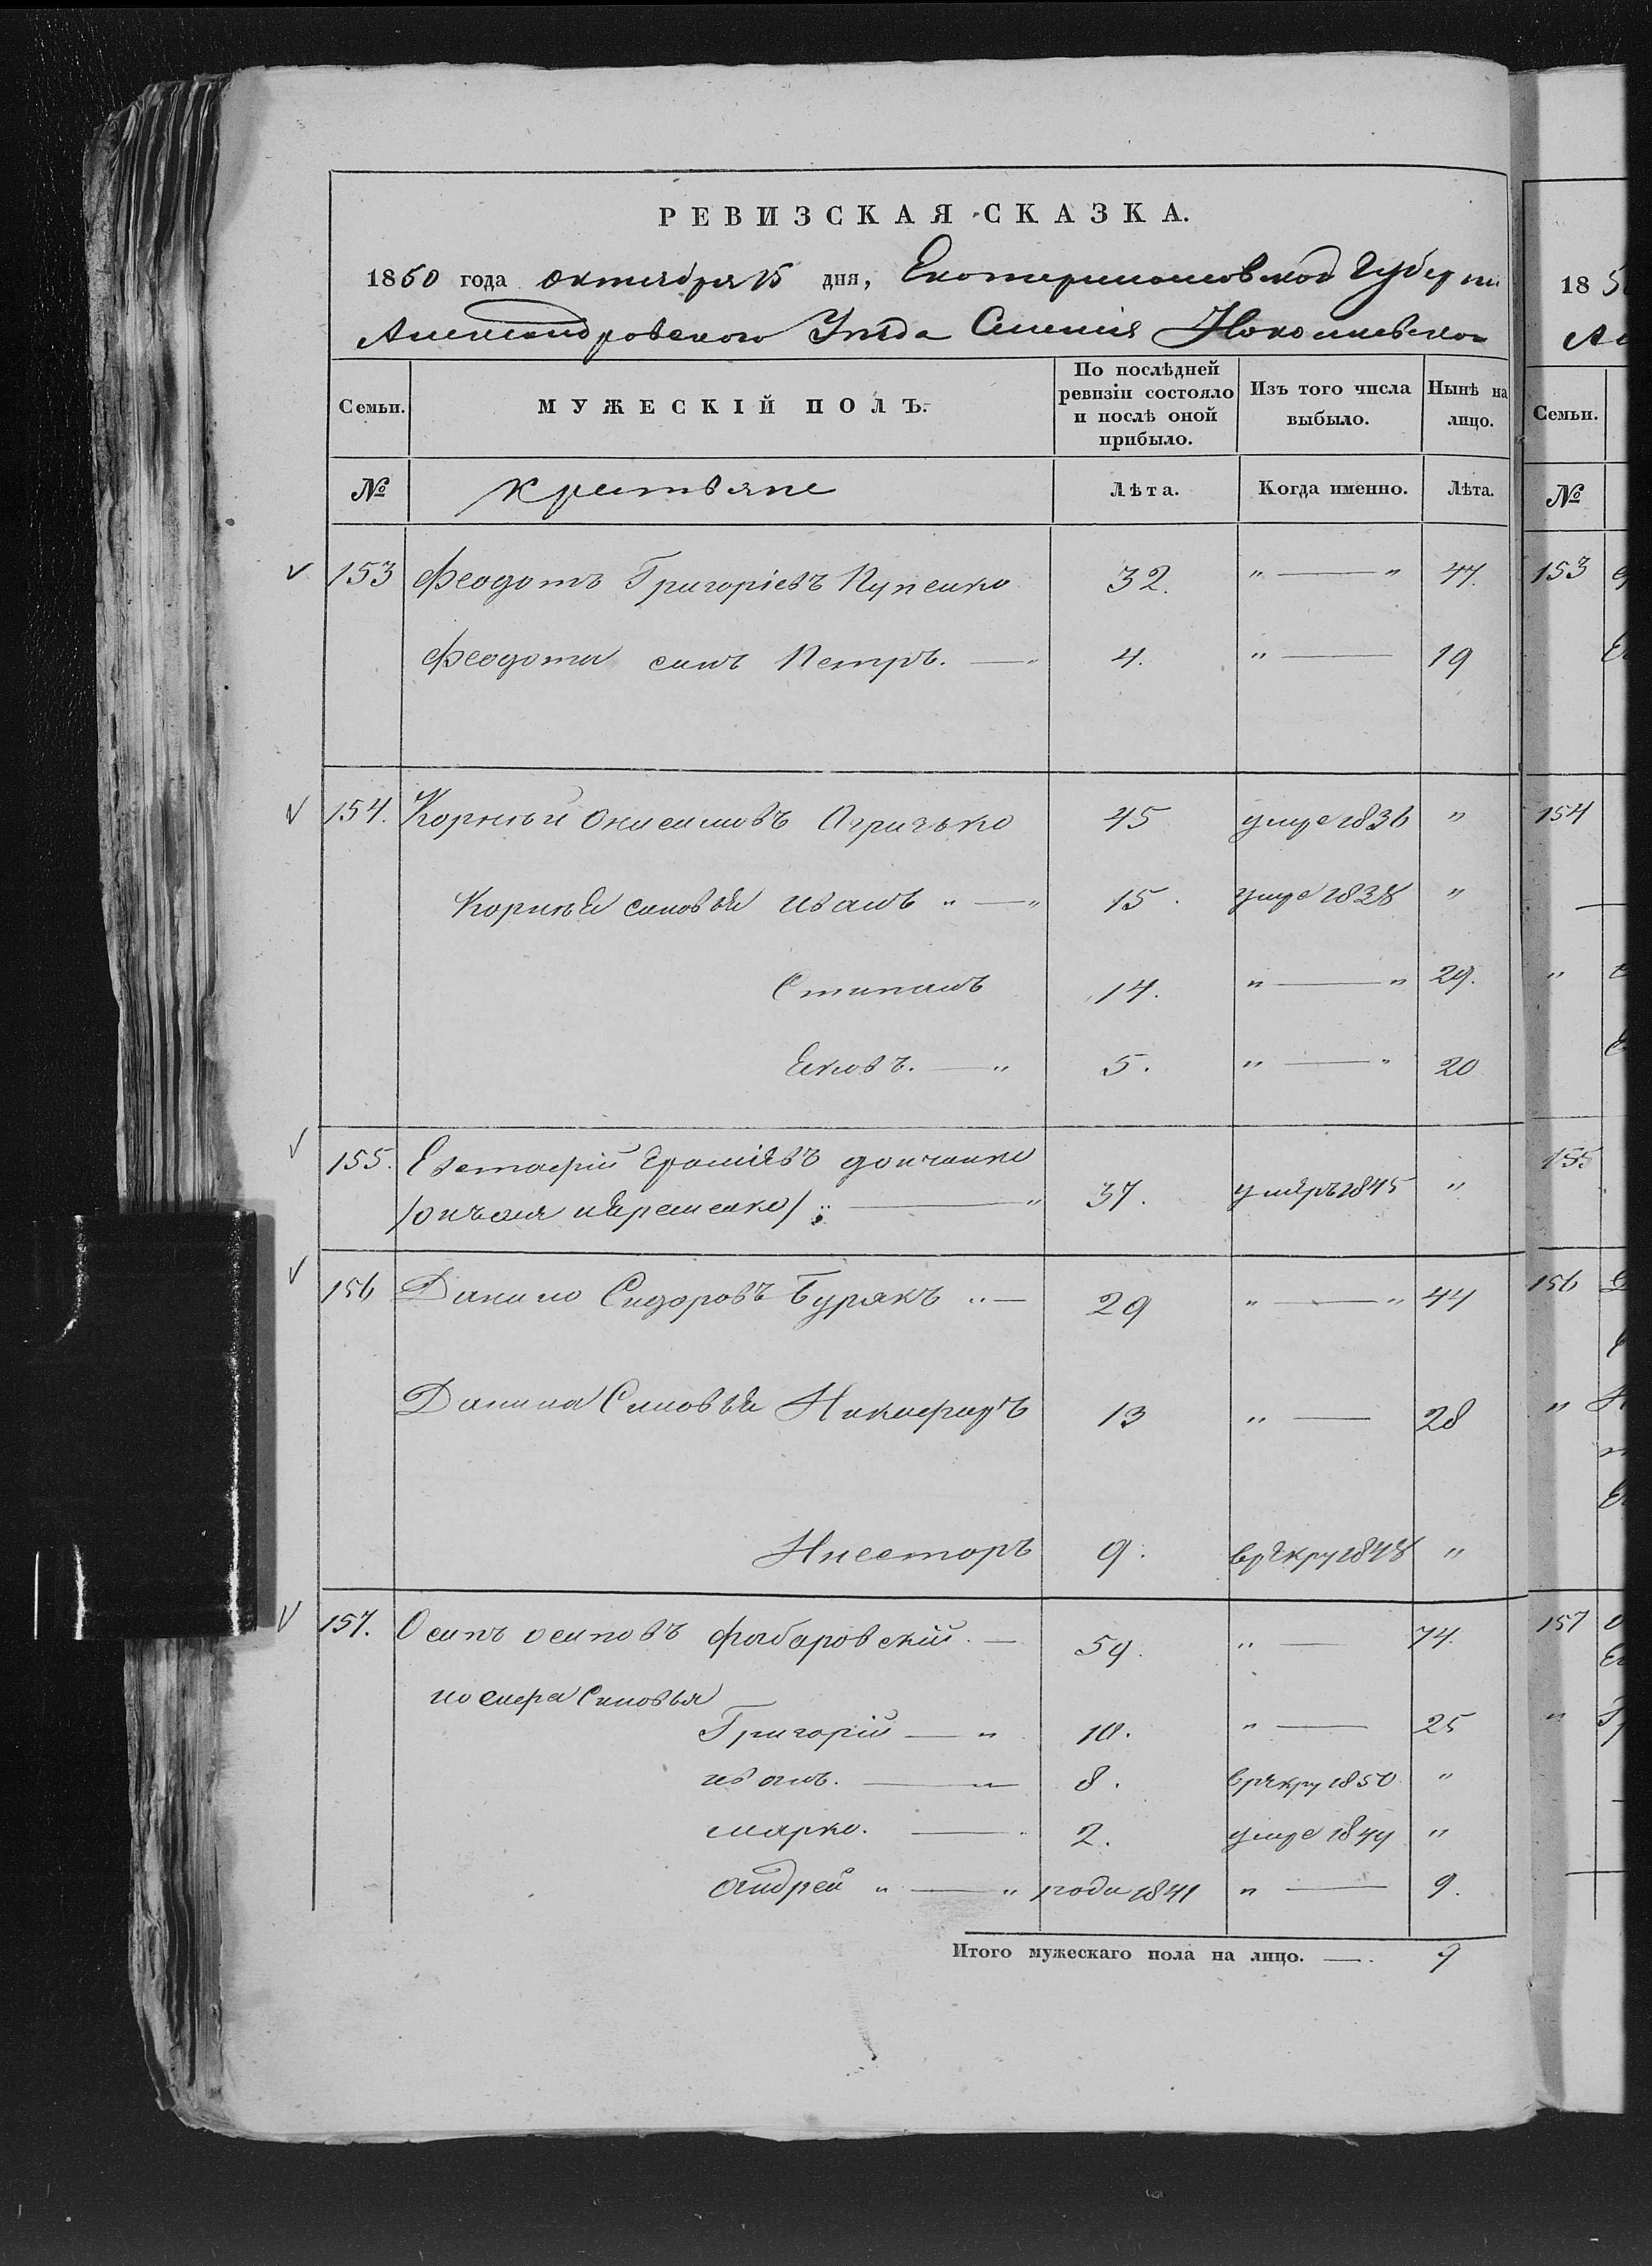 РЕВИЗСКАЯ СКАЗКА.
1850 года октября 15 дня, Екатеринославской Губерни
Александровского Уѣзда Селения
18 5
Семьи. МУЖЕСКІЙ ПОЛЪ. По послѣдней ревизіи состояло и послѣ оной прибыло. Изъ того числа выбыло. Нынѣ на лицо. Семьи.
№ крестьяне Лѣта. Когда именно. Лѣта. №
153 Феодотъ Григоріевъ Пупенко 32. " — " 47. 153
Феодота синъ Петръ. — 4. " — 19
154. Корнѣй Онисимовъ 45 умре 1836 " 154
Корнѣя синовья иванъ " — " 15. умре 1838 "
Стипанъ 14. " — " 29. "
Яковъ. — " 5. " — " 20
155. Евстафій донченко 155
37. умеръ 1845 "
156 Данило Сидоровъ Бурякъ " — 29 " — " 44 156
Данила Синовья Никифоръ 13 " — 28 "
Нисторъ 9. в рекру 1848 "
157. Осипъ осиповъ 59. " — 74. 157
иосифа Синовья
Григорій — " 10. " — 25 "
иванъ. — 8. в рекру 1850 "
марко. — 2. умре 1844 "
андрей " — " рода 1841 " — 9.
Итого мужескаго пола на лицо. — 9